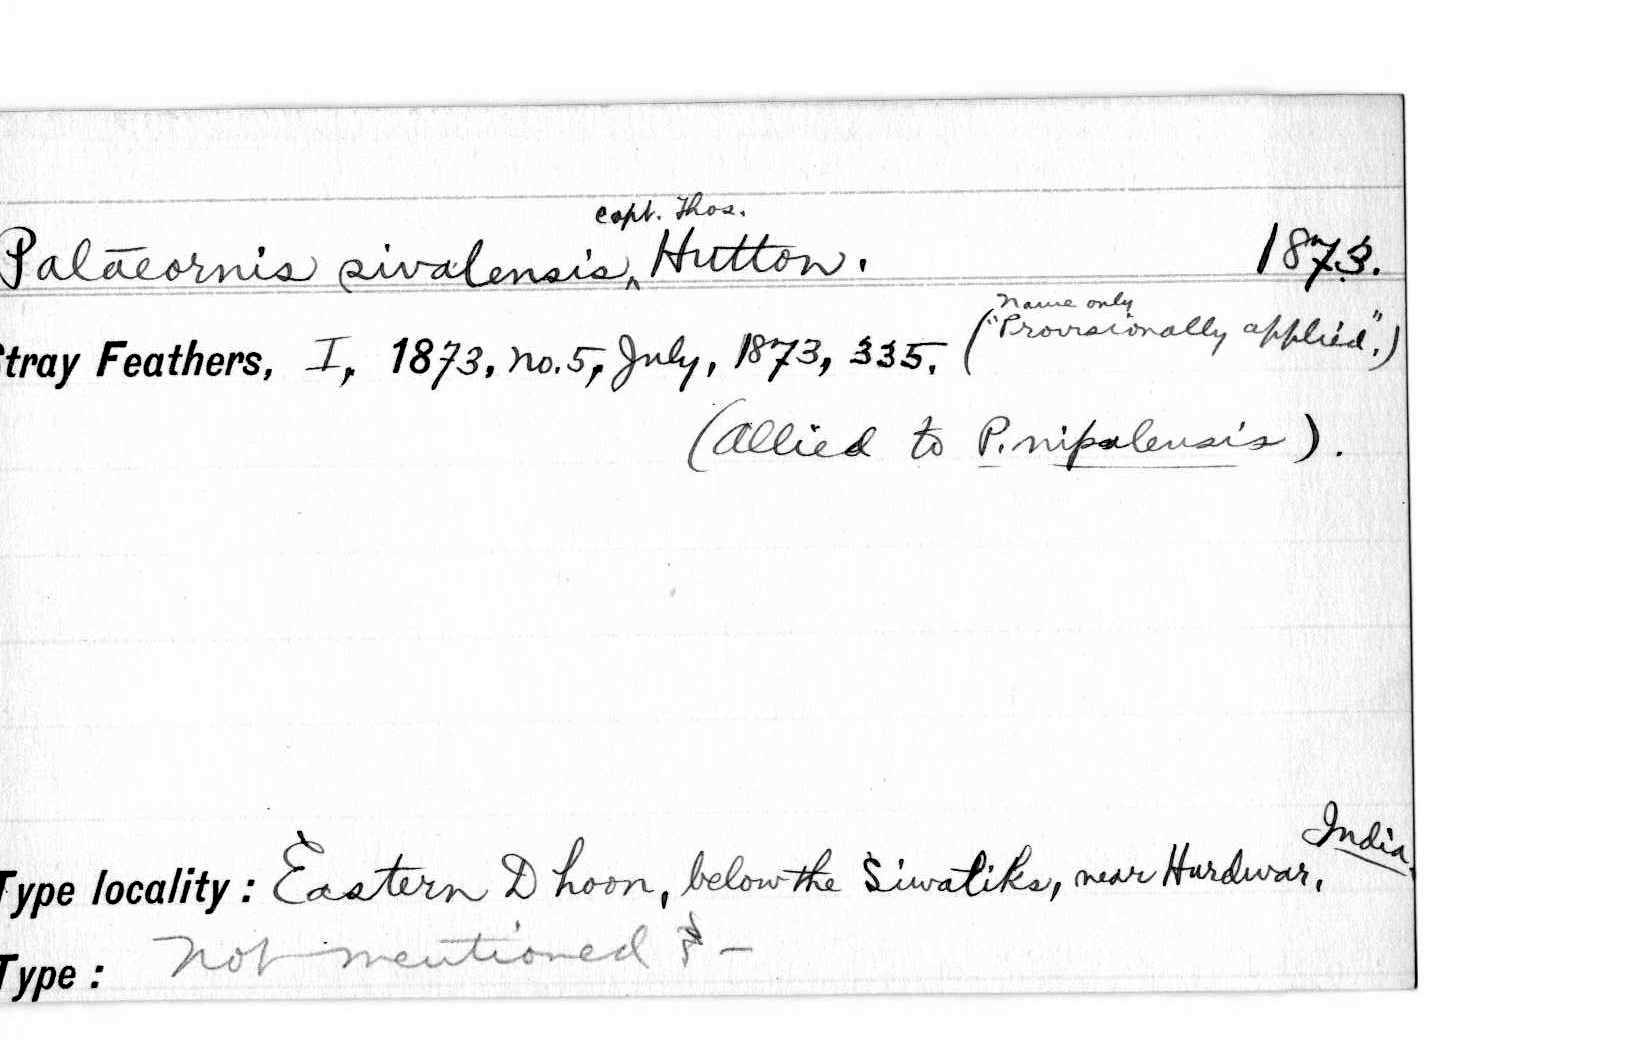 Capt. Thos.
Palaeornis sivalensis, ^ Hutton. 1873.
name only
Stray Feathers, I, 1873, no. 5, July, 1873, 335. ("Provisionally applied".)
(Allied to P. nipalensis).
India.
Type locality: Eastern Dhoon, below the Siwaliks, near Hurdwar,
Type: Not mentioned –